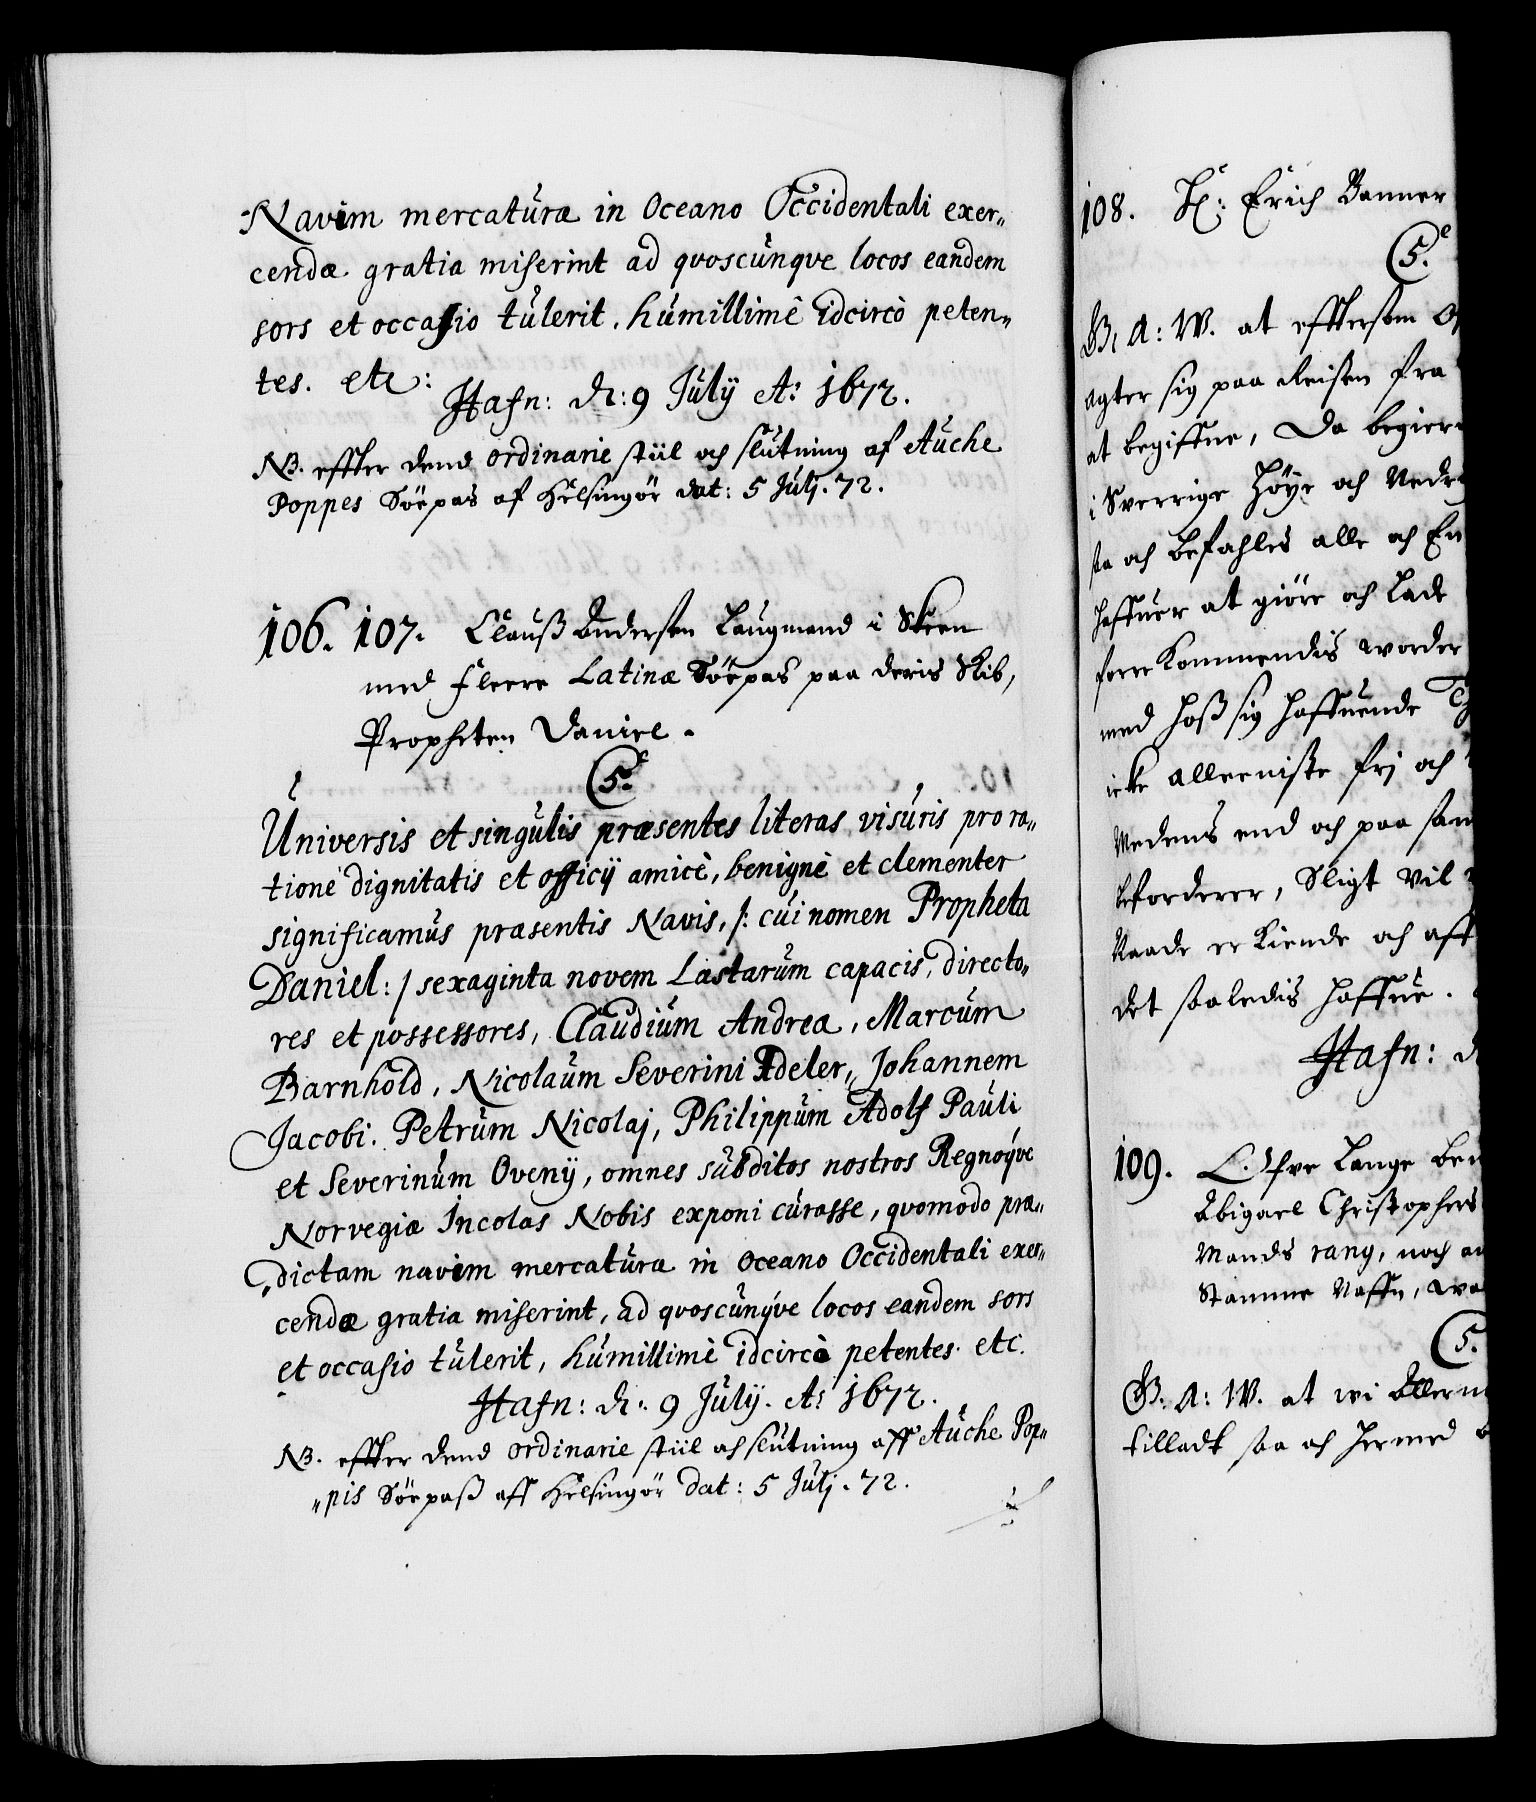 Navim mercaturæ in Oceano Occidentali exer„
cendæ gratia miserint ad qvoscunqve locos eandem
sors et occasio tulerit. humillimè idcircò peten„
tes. etc:
Hafn: d: 9 Julÿ Aº 1672.
NB. effter dend ordinarie stiil och slutning af Auche
Poppes Söepas af Helsingör dat: 5 Julj. 72.
106. 107. Clauß Andersen Laugmand i Skeen
med fleere Latinæ Söepas paa deris Skib,
Propheten Daniel.
C5.
Universis et singulis præsentes literas visuris pro ra„
tione dignitatis et officÿ amicè, benignè et clementer
significamus præsentis Navis, /: cui nomen Propheta
Daniel: / sexaginta novem Lastarum capacis, directo„
res et possessores, Claudium Andreæ, Marcum
Barnhold, Nicolaum Severini Adeler, Johannem
Jacobi. Petrum Nicolaj, Philippum Adolf Pauli
et Severinum Ovenÿ, omnes subditos nostros Regnoqve
Norvegiæ Incolas Nobis exponi curasse, qvomodo præ„
dictam navim mercaturæ in Oceano Occidentali exer„
cendæ gratia miserint, ad qvoscunqve locos eandem sors
et occasio tulerit, humillimè idcircò petentes. etc.
Hafn: d: 9 Julÿ. Aº 1672.
NB. effter dend ordinarie stiil och slutning aff Auche Pop„
„pis Söepaß aff Helsingör dat: 5 Julj. 72.
108. Hr: Erich Banner
C5.
G. A: W. at efftersom
agter sig paa Reisen fra
at begiffue, Da begier
i Sverrige Höye och Nedr
sta och befahles alle och En
haffuer at giöre och Lade
forre Kommendis worder
med hoß sig haffuende
icke alleeniste frj och
Wedens end och paa sam
beforderer, Sligt vil
Naade er Kiende och aff
det saaledis haffue.
Hafn: d
109. C. Ifve Lange
Abigael Christophers
Mands rang, noch
Stamme Naffn,
C5.
G. A: W. at wi Allern
tilladt saa och hermed